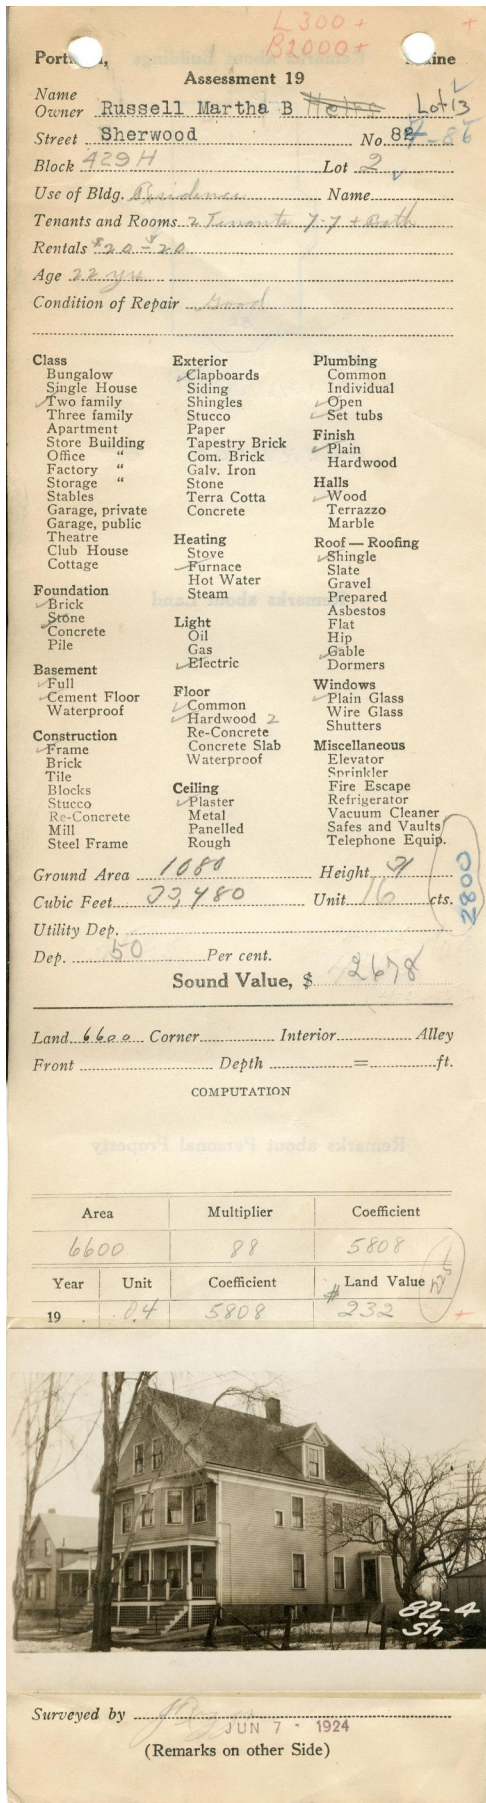 L 300 +
+
B 2000 +
Port d, aine
Assessment 19
Name
Owner Russell Martha B Heirs Lot 13
Street Sherwood No. 82-86
Block 429 H Lot 2
Use of Bldg. Residence Name
Tenants and Rooms 2 Tenants 7-7 + Bath
Rentals $20 - $20
Age 22 yrs
Condition of Repair Good
Class
Bungalow
Single House
Two family
Three family
Apartment
Store Building
Office "
Factory "
Storage "
Stables
Garage, private
Garage, public
Theatre
Club House
Cottage
Foundation
Brick
Stone
Concrete
Pile
Basement
Full
Cement Floor
Waterproof
Construction
Frame
Brick
Tile
Blocks
Stucco
Re-Concrete
Mill
Steel Frame
Exterior
Clapboards
Siding
Shingles
Stucco
Paper
Tapestry Brick
Com. Brick
Galv. Iron
Stone
Terra Cotta
Concrete
Heating
Stove
Furnace
Hot Water
Steam
Light
Oil
Gas
Electric
Floor
Common
Hardwood 2
Re-Concrete
Concrete Slab
Waterproof
Ceiling
Plaster
Metal
Panelled
Rough
Plumbing
Common
Individual
Open
Set tubs
Finish
Plain
Hardwood
Halls
Wood
Terrazzo
Marble
Roof — Roofing
Shingle
Slate
Gravel
Prepared
Asbestos
Flat
Hip
Gable
Dormers
Windows
Plain Glass
Wire Glass
Shutters
Miscellaneous
Elevator
Sprinkler
Fire Escape
Refrigerator
Vacuum Cleaner
Safes and Vaults
Telephone Equip.
Ground Area 1080 Height 31
Cubic Feet 33,480 Unit 16 cts.
2800
Utility Dep.
Dep. 50 Per cent.
Sound Value, $ 2678
Land 6600 Corner Interior Alley
Front Depth = ft.
COMPUTATION
Area Multiplier Coefficient
6600 88 5808
Year Unit Coefficient Land Value
19 .04 5808 $232
+
82-4
Sh
Surveyed by
JUN 7 - 1924
(Remarks on other Side)